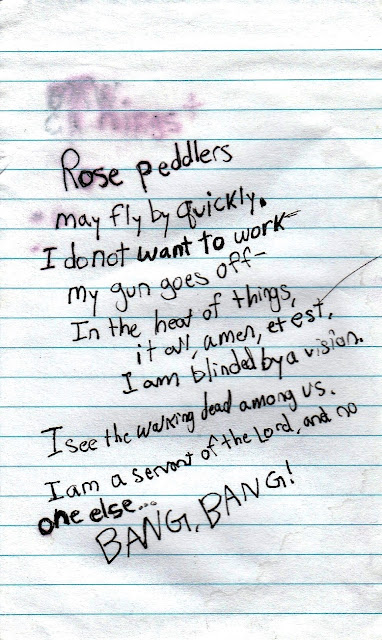 things
Rose peddlers
may fly by quickly.
I do not want to work
my gun goes off-
In the heat of things,
it all, amen, et est.
I am blinded by a vision.
I see the walking dead among us.
I am a servant of the Lord, and no
one else...
BANG, BANG!